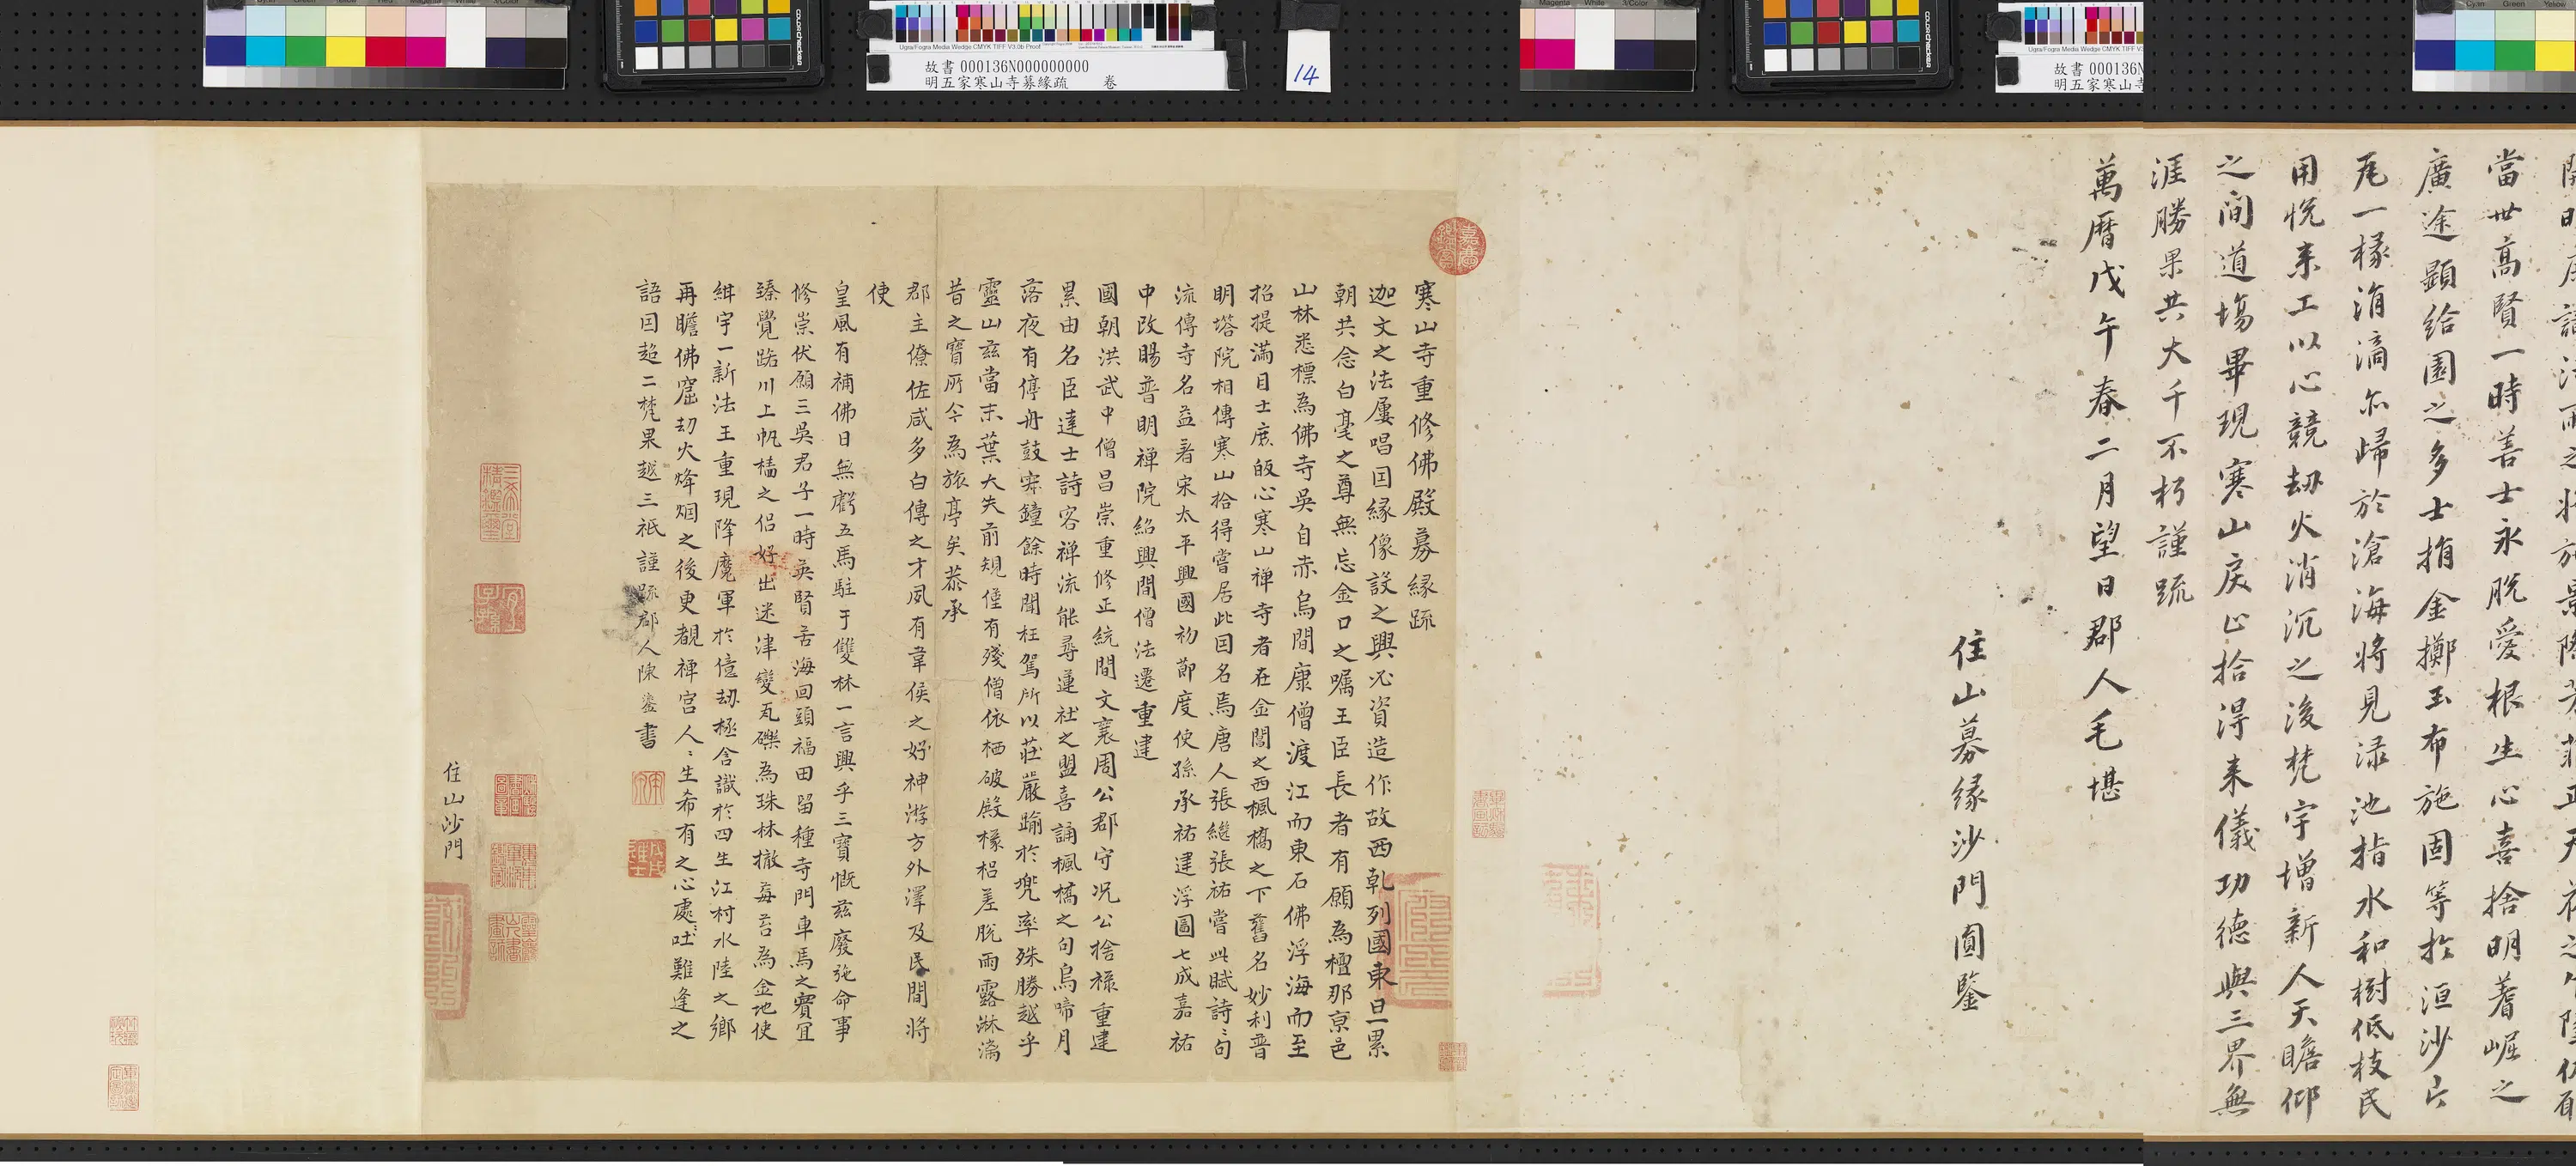 當世高賢一時善士永脫愛根生心喜捨明蓍崛之
廣途顯給園之多士捐金擲玉布施固等於洹沙片
瓦一椽涓滴亦歸於滄海將見淥池指水和樹低枝民
用悅來工以心競劫火消沉之後梵宇增新人天瞻仰
之間道場畢現寒山戾止拾得來儀功德與三界無
涯勝果共大千不朽謹疏
萬曆戊午春二月望日郡人毛堪
住山募緣沙門圓鑒
寒山寺重修佛殿募緣疏
迦文之法屢唱因緣像設之興必資造作故西乹列國東旦累
朝共念白毫之尊無忘金口之囑王臣長者有願為檀那京邑
山林悉標為佛寺吳自赤烏間康僧渡江而東石佛浮海而至
招提滿目士庶皈心寒山禅寺者在金閶之西楓橋之下舊名妙利普
明塔院相傳寒山拾得嘗居此因名焉唐人張繼張祐嘗此賦詩詩句
流傳寺名益著宋太平興國初節度使孫承祐建浮圖七成嘉祐
中改賜普明禅院紹興間僧法遷重建
國朝洪武中僧昌崇重修正統間文襄周公郡守况公捨祿重建
累由名臣達士詩客禅流能尋蓮社之盟喜誦楓橋之句烏啼月
落夜有停舟鼓寂鐘餘時聞枉駕所以莊嚴踰於兜率殊勝越乎
靈山茲當末葉大失前規僅有殘僧依栖破殿椽梠差脫雨露淋漓
昔之寶所今為旅亭矣恭承
郡主僚佐咸多白傅之才夙有韋侯之好神游方外澤及民間將
使
皇風有補佛日無虧五馬駐于雙林一言興乎三寶慨茲廢弛命事
修崇伏願三吳君子一時英賢苦海回頭福田留種寺門車馬之賓冝
臻覺路川上帆檣之侣好出迷津變瓦礫為珠林撤莓苔為金地使
紺宇一新法王重現降魔軍於億劫極含識於四生江村水陸之鄉
再瞻佛窟劫火烽烟之後更覩禅宫人人生希有之心處處吐難逢之
語因超二梵果越三祇謹疏郡人陳鎏書
住山沙門
故書 000136N000000000
明五家寒山寺募緣疏 卷
14
故書 000136N
明五家寒山寺
Ugra/Fogra Media Wedge CMYK TIFF V3.0b Proof
colorchecker